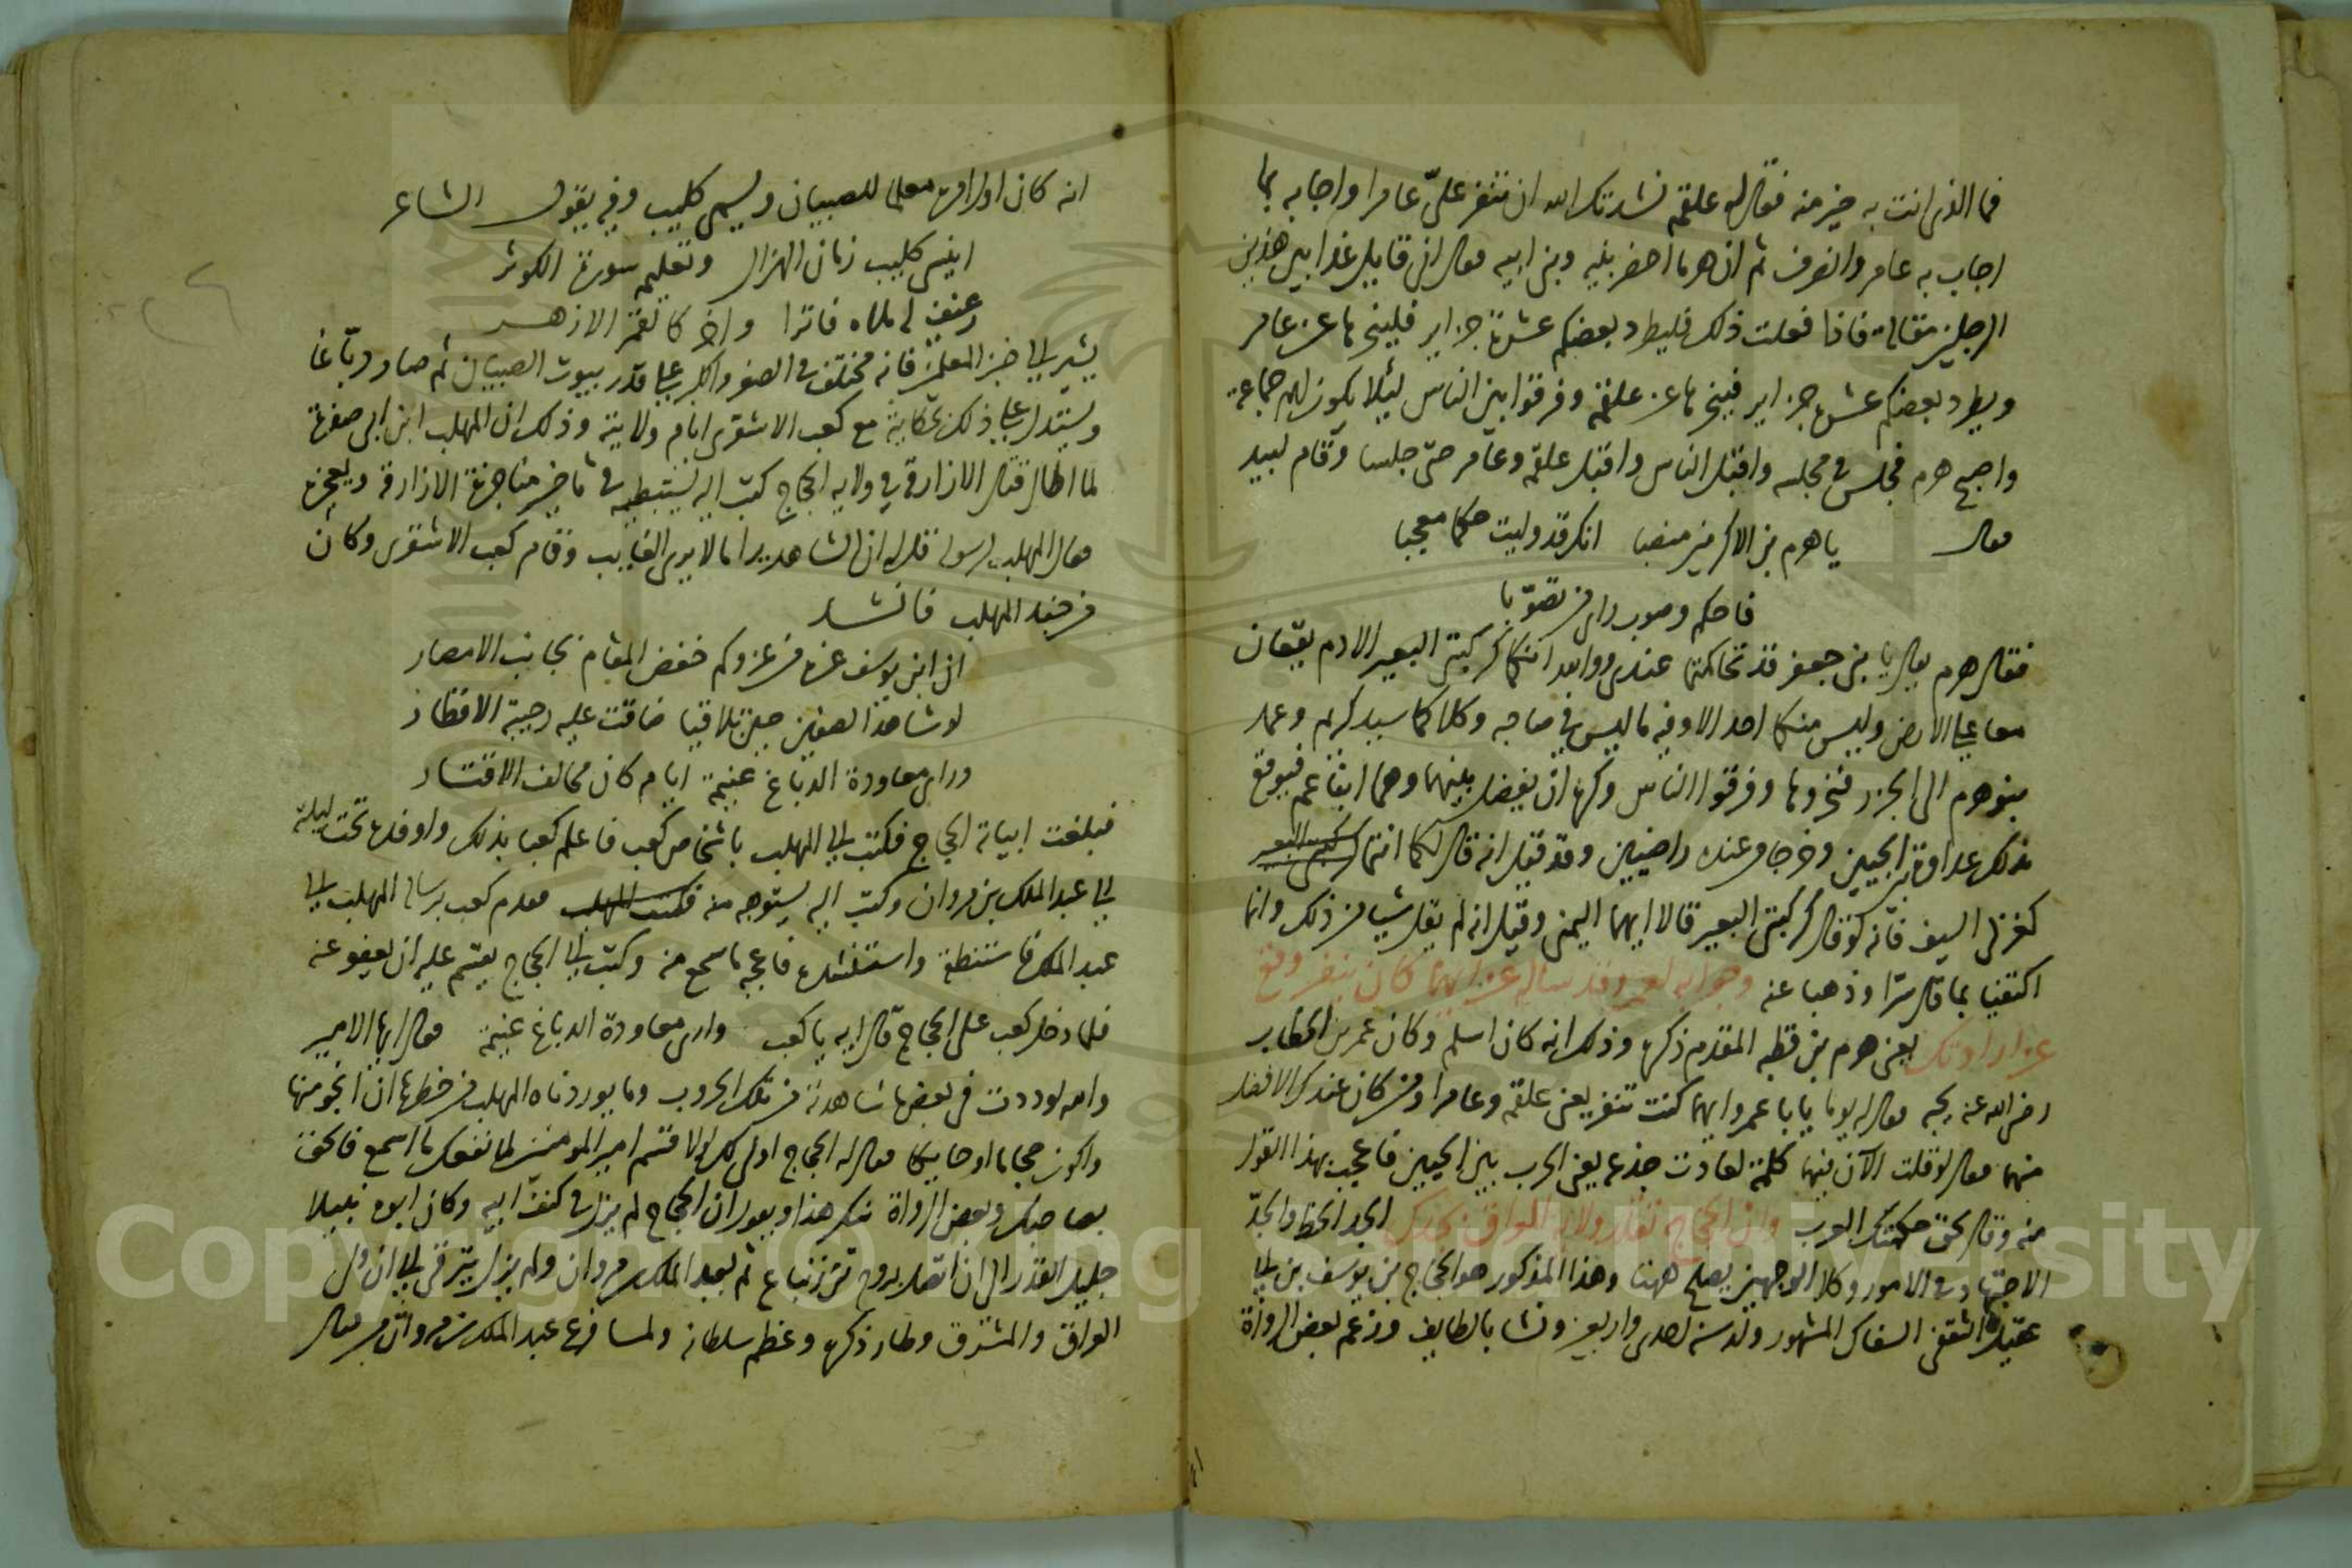 فما الذى انت به خير منه فقال له علقمه نشدتك الله ان تنفر علىّ عامرا واجابه بما
اجاب به عامر وانصرف ثم ان هرما احضر بنيه وبنى ابيه فقال انى قايل غدا بين هذين
الرجلين مقالة فاذا فعلت ذلك فليطرد بعضكم عشرة جزاير فلينحرها عن عامر
ويطرد بعضكم عشر جزاير فينحرها عن علقمه وفرقوا بين الناس ليلا يكون لهم جماعة
واصبح هرم فجلس فى مجلسه واقبل الناس واقبل علقمه وعامر حتى جلسا وقام لبيد
فقال يا هرم بن الاكرمين منصبا انك قد وليت حكما معجبا
فاحكم وصوب راى من تصوّبا
فقال هرم يا بنى جعفر قد تحاكمتما عندى ووالله انكما كركبتى البعير الادم يقعان
معا على الارض وليس منكما احد الا وفيه ما ليس فى صاحبه وكلاكما سيد كريم وعمد
بنو هرم الى الجزر فنحروها وفرقوا الناس وكره ان يفضل بينهما وهما ابنا عم فيوقع
بذلك عداوة بين الحيين وخرجا من عنده راضيين وقد قيل انه قال لكما انتما كركبتى البعير
كغربى السيف فانه لو قال كركبتى البعير قالا ايهما اليمنى وقيل انه لم يقل شيا من ذلك وانما
اكتفيا بما قال سرا وذهبا عنه وجوابه لعمر وقد ساله عن ايهما كان ينفر وقع
عن ارادتك يعنى هرم بن قطبه المقدم ذكره وذلك انه كان اسلم وكان عمر بن الخطاب
رضى الله عنه يحبه فقال له يوما يابا عمرو ايهما كنت تنفر يعنى علقمه وعامرا ومن كان عندك الافضل
منهما فقال لو قلت الآن فيهما كلمة لعادت جذعه يعنى الحرب بين الحيين فاعجب بهذا القول
منه وقال بحق حكمتك العرب وان الحجاج تقلد ولاية العراق بجدك الجد الحظ والجدّ
الاجتهاد فى الامور وكلا الوجهين يصلح ههنا وهذا المذكور هو الحجاج بن يوسف بن ابى
عقيل الثقفى السفاك المشهور ولد سنه احدى واربعين ونشا بالطايف وزعم بعض الرواة
انه كان اول امره معلما للصبيان ويسمى كليب وفيه يقول الشاعر
اينسى كليب زمان الهزال وتعليمه سورة الكوثر
رغيف له فاترا واخر كالقمر الازهر
يشير الى خبز المعلمين فانه مختلف فى الصغر والكبر على قدر بيوت الصبيان ثم صار دبّاغا
ويستدل على ذلك بحكايته مع كعب الاشقرى ايام ولايته وذلك ان المهلب ابن ابى صفرة
لما اطال قتال الازارقة فى ولايه الحجاج كتب اليه يستبطيه فى تاخير مناجزة الازارقة ويعجزه
فقال المهلب لرسوله قل له ان الشاهد يرا ما لا يرى الغايب وقام كعب الاشقرى وكان
من جند المهلب فانشد
ان ابن يوسف غره من غزوكم خفض المقام بجانب الامصار
لو شاهد الصفين حين تلاقيا ضاقت عليه رحيبة الاقطار
وراى معاودة الدباغ غنيمة ايام كان محالف الاقتار
فبلغت ابياته الحجاج فكتب الى المهلب باشخاص كعب فاعلم كعبا بذلك واوفده تحت ليلته
الى عبد الملك بن مروان وكتب اليه يستوهبه منه فكتب المهلب فقدم كعب برسالة المهلب الى
عبد الملك فاستنطقه واستنشده فاعجبه ما سمع منه وكتب الى الحجاج يقسم عليه ان يعفو عنه
فلما دخل كعب على الحجاج قال ايه يا كعب وارى معاودة الدباغ غنيمة فقال ايها الامير
والله لوددت فى بعض ما شاهدته من تلك الحروب وما يوردناه المهلب من خطرها ان انجو منها
واكون حجاما او حايكا فقال له الحجاج اولى لك لولا قسم امير المومنين لما نفعك ما اسمع فالحق
بصاحبك وبعض الرواة ينكر هذا ويقول ان الحجاج لم يزل فى كنف ابيه وكان ابوه نبيلا
جليل القدر الى ان اتصل بروح بن زنباع ثم بعبد الملك بن مروان ولم يزل يترقى الى ان ولى
العراق والمشرق وطار ذكره وعظم سلطانه ولما سافر عبد الملك بن مروان
Copyright © King Saud University